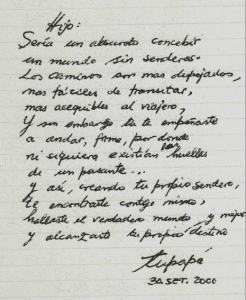 Hijo:
Sería un absurdo concebir
un mundo sin senderos.
Los caminos son mas despejados,
mas fáciles de transitar,
mas asequibles al viajero,
y sin embargo tú te empeñaste
a andar, firme, por donde
ni siquiera existían las huellas
de un pasante...
y así, creando tu propio sendero,
te encontraste contigo mismo,
hallaste el verdadero mundo y mejor
y alcanzaste tu propio destino
tu papá
30.SET. 2000